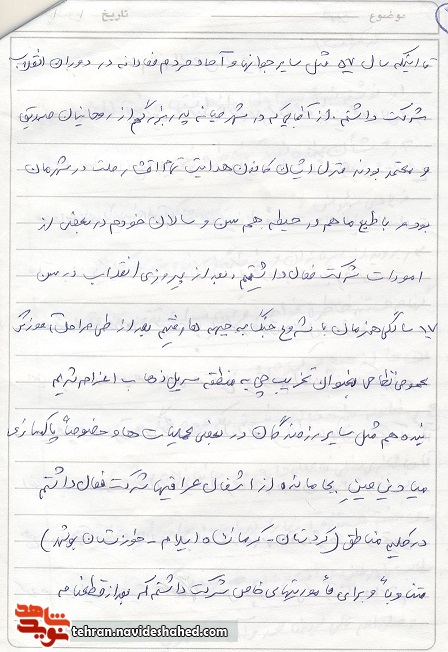 موضوع تاریخ
تا اینکه سال ۵۷ مثل سایر جوانها و آحاد مردم فعالانه در دوران انقلاب
شرکت داشتم. از آنجائیکه در شهر میانه پدربزرگم از روحانیان صدیق
و معتمد بودند منزل ایشان کانون هدایت تمام اقشار ملت در شهرمان
بود و بالطبع ما هم در حیطه هم سن و سالان خودم در بعضی از
امورات شرکت فعال داشتیم، بعد از پیروزی انقلاب در سن
۱۷ سالگی همزمان با شروع جنگ به جبهه ها رفتیم بعد از طی مراحل آموزش
عمومی نظامی بعنوان تخریب چی به منطقه سرپل ذهاب اعزام شدیم
بنده هم مثل سایر رزمندگان در بعضی عملیات ها و خصوصاً پاکسازی
میادین مین بجا مانده از اشغال عراقیها شرکت فعال داشتم
در کلیه مناطق (کردستان - کرمانشاه ایلام - خوزستان بوشهر)
متناوباً و برای مأموریتهای خاص شرکت داشتم که بعد از قطعنامه
نوید شاهد
tehran.navideshahed.com